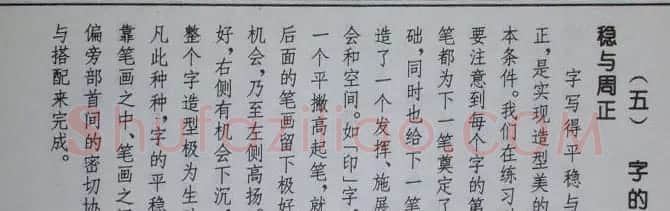 （五） 字的
稳与周正
字写得平稳与
正，是实现造型美的
本条件。我们在练习，
要注意到每个字的第
笔都为下一笔奠定了
础，同时也给下一笔
造了一个发挥、施展
会和空间。如“印”字，
一个平撇高起笔，就
后面的笔画留下极好
机会，乃至左侧高扬。
好，右侧有机会下沉，
整个字造型极为生
凡此种种，字的平稳
靠笔画之中、笔画之
偏旁部首间的密切协
与搭配来完成。